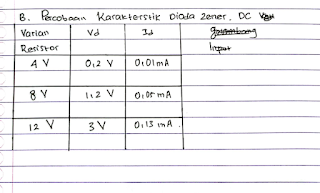 B. Percobaan Karakterstik Dioda Zener, DC
Varian Resistor Vd Id
Input
4 V 0,2 V 0,01 mA
8 V 1,2 V 0,05 mA
12 V 3 V 0,13 mA.